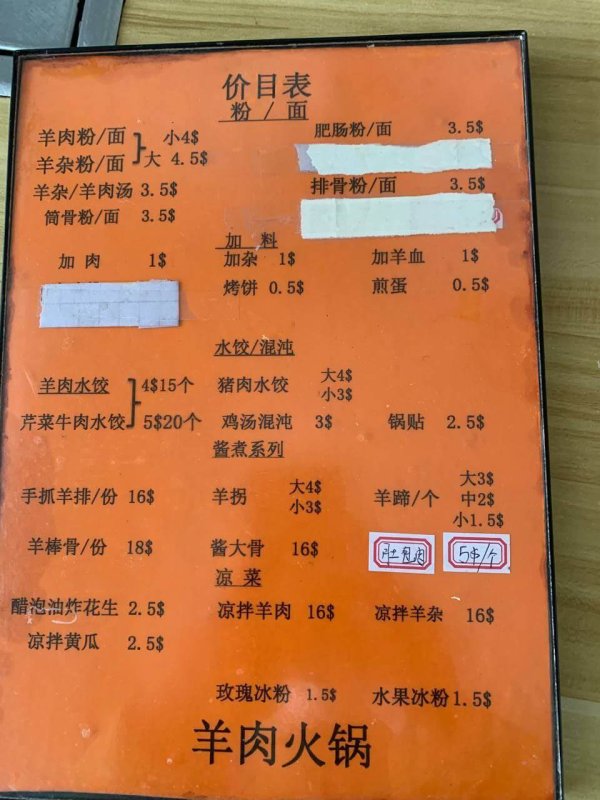 价目表
粉 / 面
羊肉粉/面 小4$ 肥肠粉/面 3.5$
羊杂粉/面 大 4.5$
羊杂/羊肉汤 3.5$ 排骨粉/面 3.5$
筒骨粉/面 3.5$
加 料
加 肉 1$ 加杂 1$ 加羊血 1$
烤饼 0.5$ 煎蛋 0.5$
水饺/混沌
羊肉水饺 4$15个 猪肉水饺 大4$ 小3$
芹菜牛肉水饺 5$20个 鸡汤混沌 3$ 锅贴 2.5$
酱煮系列
手抓羊排/份 16$ 羊拐 大4$ 小3$ 羊蹄/个 大3$ 中2$ 小1.5$
羊棒骨/份 18$ 酱大骨 16$ 肚包肉 5$/个
凉 菜
醋泡油炸花生 2.5$ 凉拌羊肉 16$ 凉拌羊杂 16$
凉拌黄瓜 2.5$
玫瑰冰粉 1.5$ 水果冰粉 1.5$
羊肉火锅